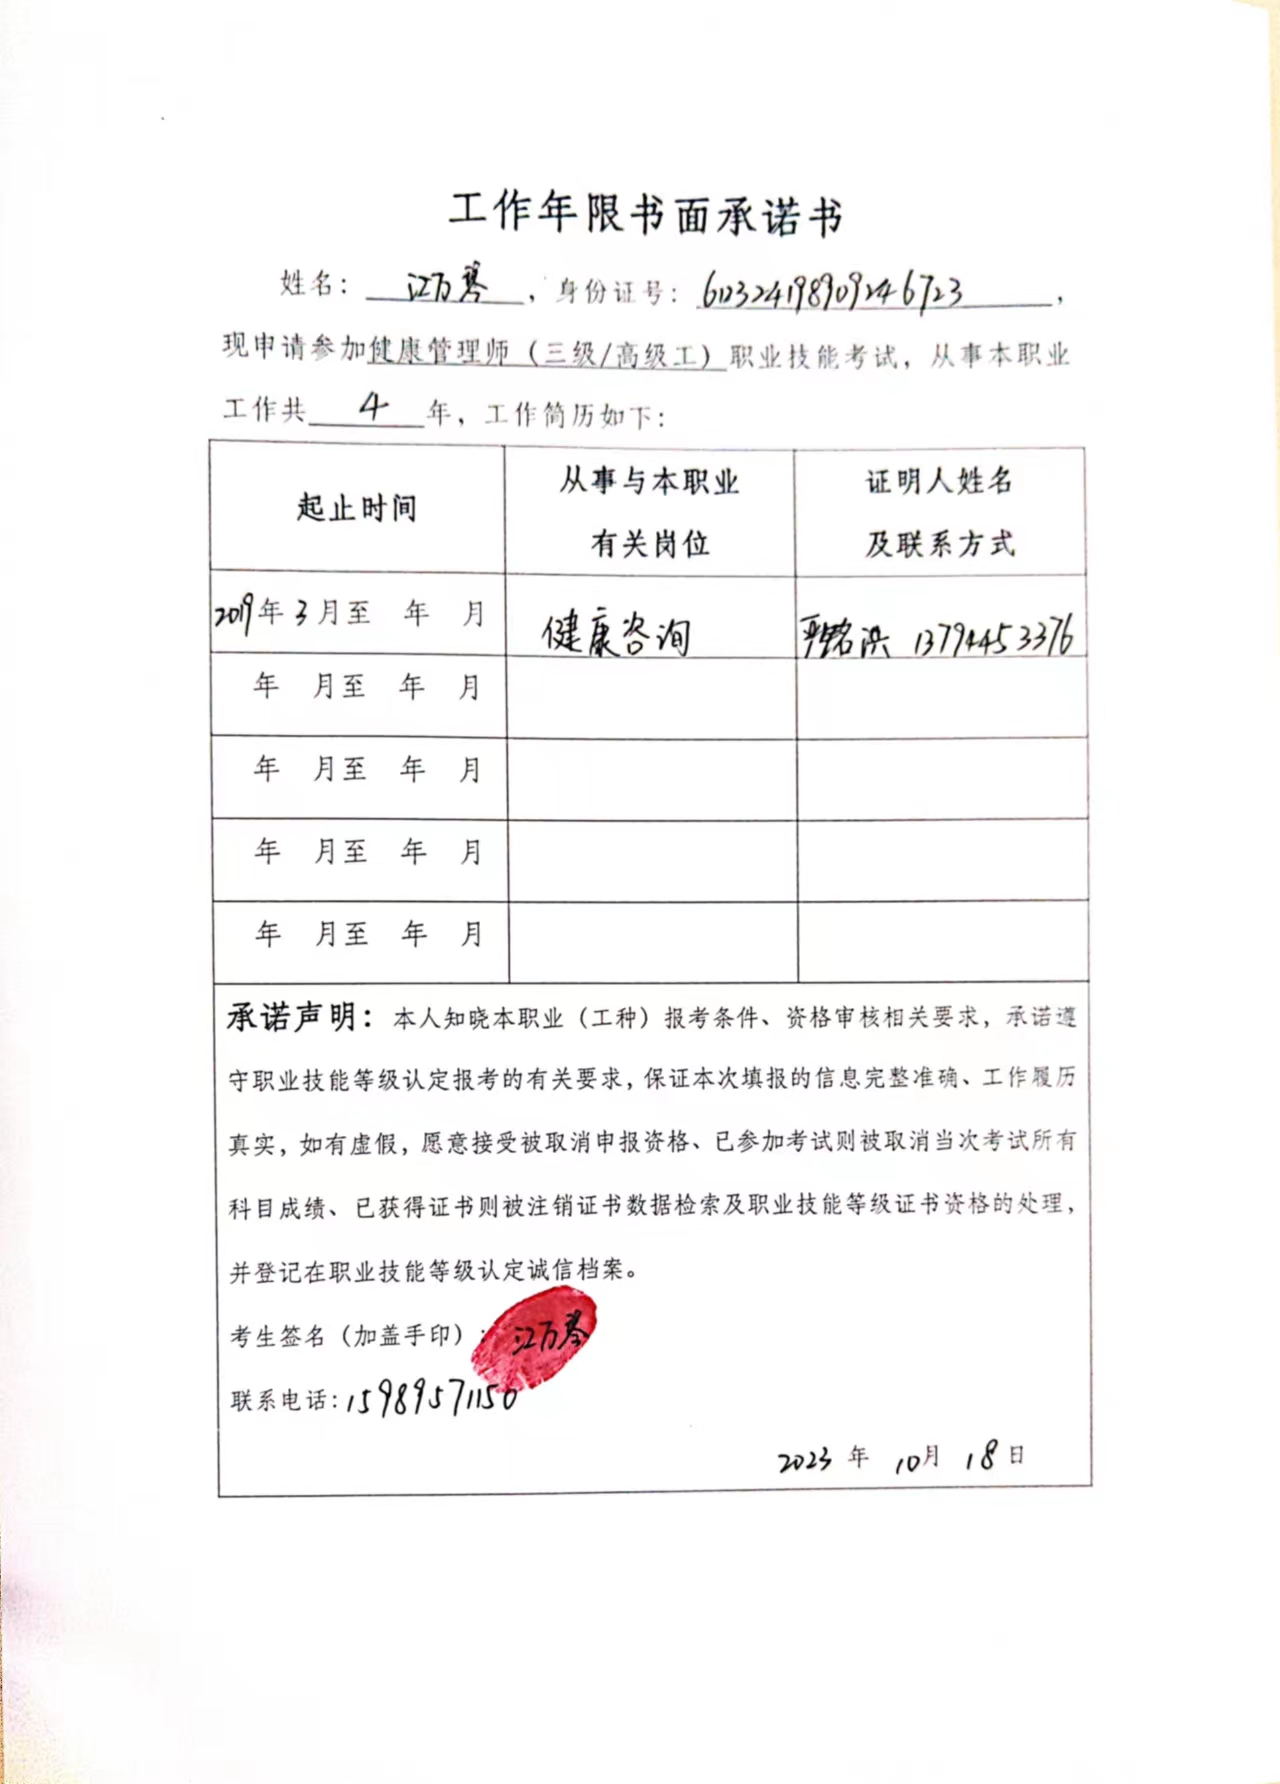 工作年限书面承诺书
姓名：江万琴，身份证号：610324198909246723，
现申请参加健康管理师（三级/高级工）职业技能考试，从事本职业
工作共 4 年，工作简历如下：
起止时间
从事与本职业
有关岗位
证明人姓名
及联系方式
2019年 3月至 年 月
健康咨询
洪 13794453376
年 月至 年 月
年 月至 年 月
年 月至 年 月
年 月至 年 月
承诺声明：本人知晓本职业（工种）报考条件、资格审核相关要求，承诺遵
守职业技能等级认定报考的有关要求，保证本次填报的信息完整准确、工作履历
真实，如有虚假，愿意接受被取消申报资格、已参加考试则被取消当次考试所有
科目成绩、已获得证书则被注销证书数据检索及职业技能等级证书资格的处理，
并登记在职业技能等级认定诚信档案。
考生签名（加盖手印）：江万琴
联系电话：15989571150
2023 年 10月 18日